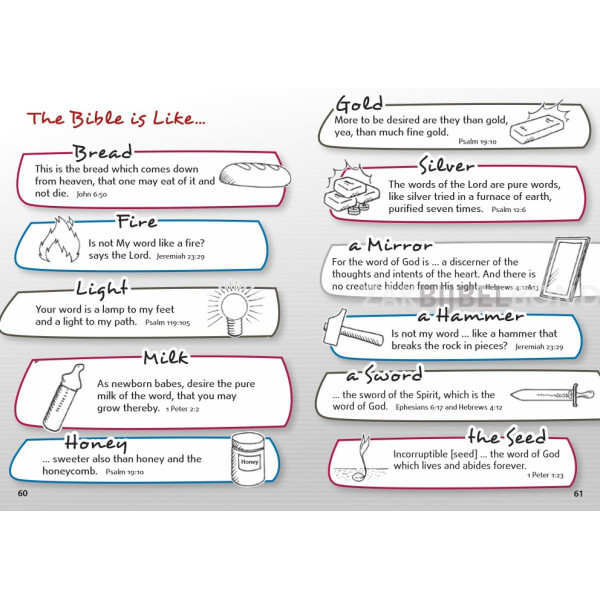 The Bible is Like...
Bread
This is the bread which comes down
from heaven, that one may eat of it and
not die. John 6:50
Fire
Is not My word like a fire?
says the Lord. Jeremiah 23:29
Light
Your word is a lamp to my feet
and a light to my path. Psalm 119:105
Milk
As newborn babes, desire the pure
milk of the word, that you may
grow thereby. 1 Peter 2:2
Honey
... sweeter also than honey and the
honeycomb. Psalm 19:10
Honey
60
Gold
More to be desired are they than gold,
yea, than much fine gold.
Psalm 19:10
Silver
The words of the Lord are pure words,
like silver tried in a furnace of earth,
purified seven times. Psalm 12:6
a Mirror
For the word of God is ... a discerner of the
thoughts and intents of the heart. And there is
no creature hidden from His sight. Hebrews 4:12&13
a Hammer
Is not my word ... like a hammer that
breaks the rock in pieces? Jeremiah 23:29
a Sword
... the sword of the Spirit, which is the
word of God. Ephesians 6:17 and Hebrews 4:12
the Seed
Incorruptible [seed] ... the word of God
which lives and abides forever.
1 Peter 1:23
61